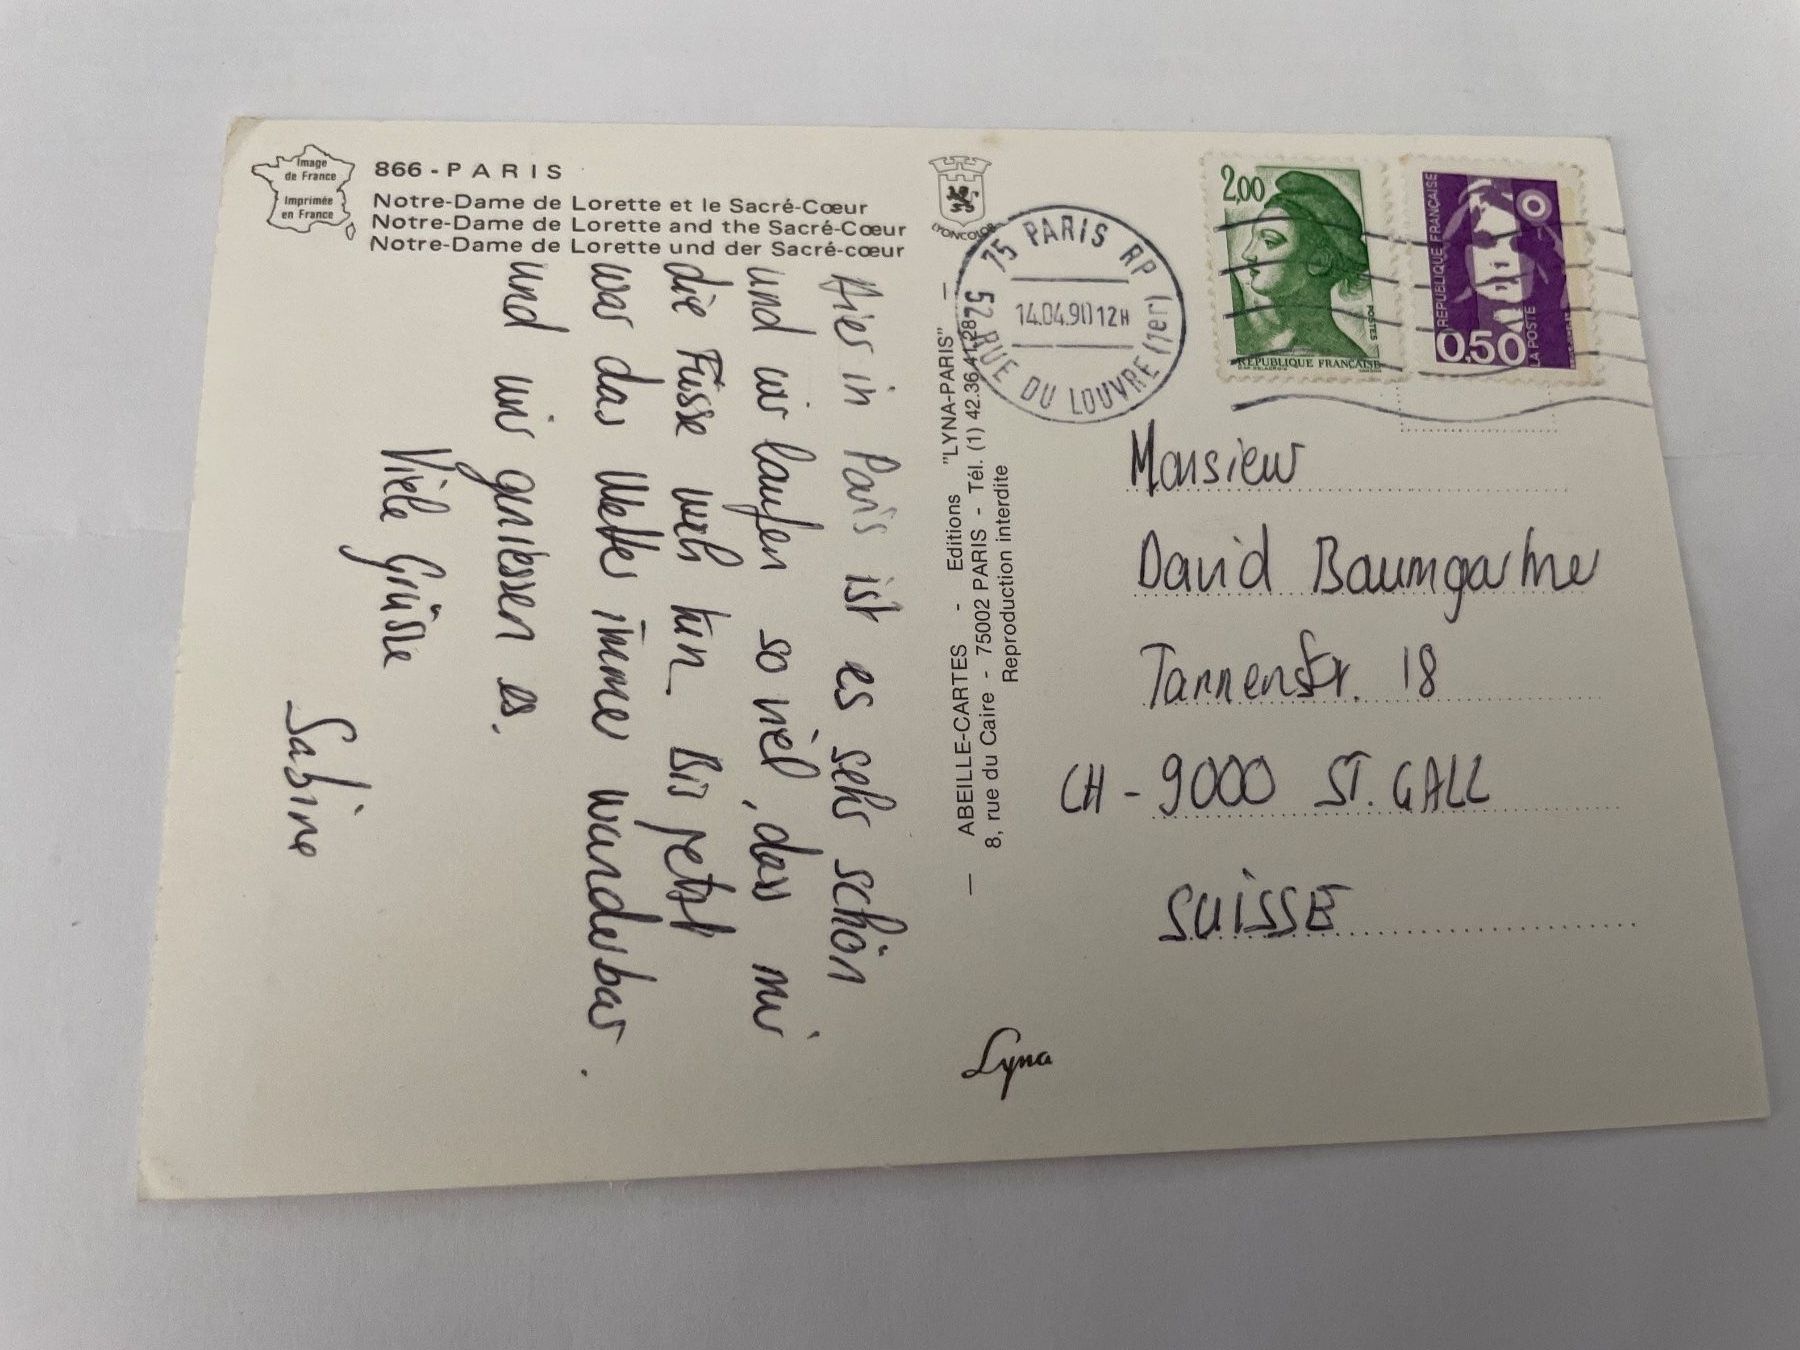 Image
de France
Imprimée
en France
866 - PARIS
Notre-Dame de Lorette et le Sacré-Cœur
Notre-Dame de Lorette and the Sacré-Cœur
Notre-Dame de Lorette und der Sacré-cœur
Hier in Paris ist es sehr schön
und wir laufen so viel, dass mir
die Füsse weh tun. Bis jetzt
war das Wetter immer wunderbar
und wir geniessen es.
Viele Grüsse
Sabine
LYONCOLOR
— ABEILLE-CARTES - Editions "LYNA-PARIS" —
8, rue du Caire - 75002 PARIS - Tél. (1) 42.36.41.28
Reproduction interdite
Lyna
75 PARIS RP
14.04.90 12H
52 RUE DU LOUVRE (1er)
2,00
POSTES
RÉPUBLIQUE FRANÇAISE
RÉPUBLIQUE FRANÇAISE
0,50
LA POSTE
Monsieur
David Baumgartner
Tannenstr. 18
CH - 9000 ST. GALL
SUISSE